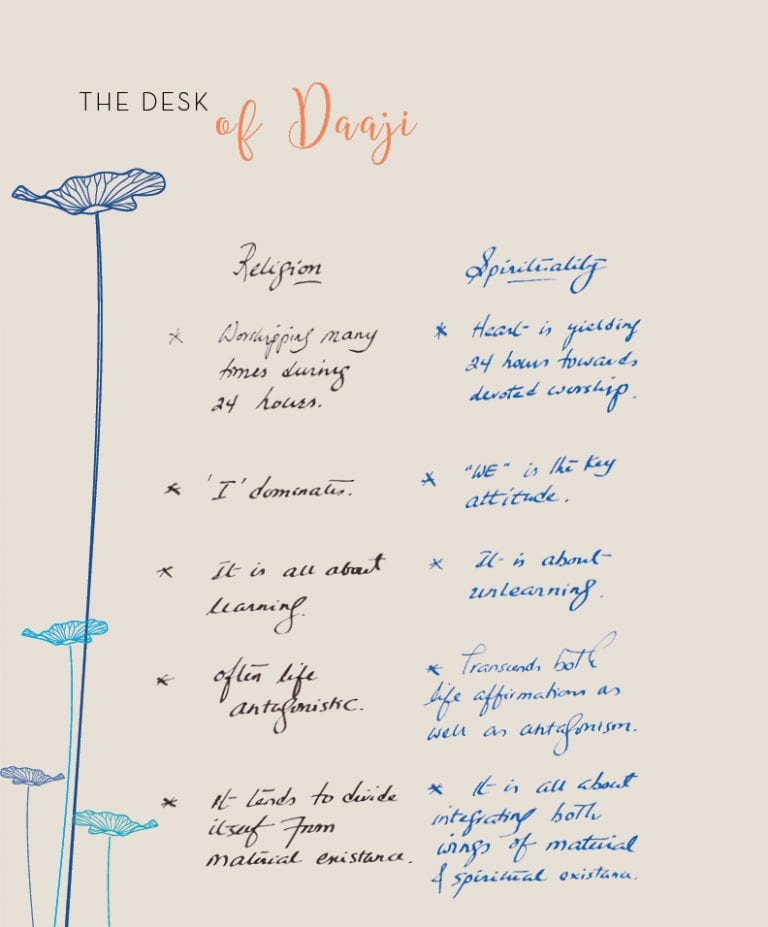 THE DESK of Daaji
Religion
* Worshipping many
times during
24 hours.
* 'I' dominates.
* It is all about
learning.
* often life
antagonistic.
* It tends to divide
itself from
material existance.
Spirituality
* Heart is yielding
24 hours towards
devoted worship.
* "WE" is the key
attitude.
* It is about
unlearning.
* Transcends both
life affirmations as
well as antagonism.
* It is all about
integrating both
wings of material
& spiritual existance.